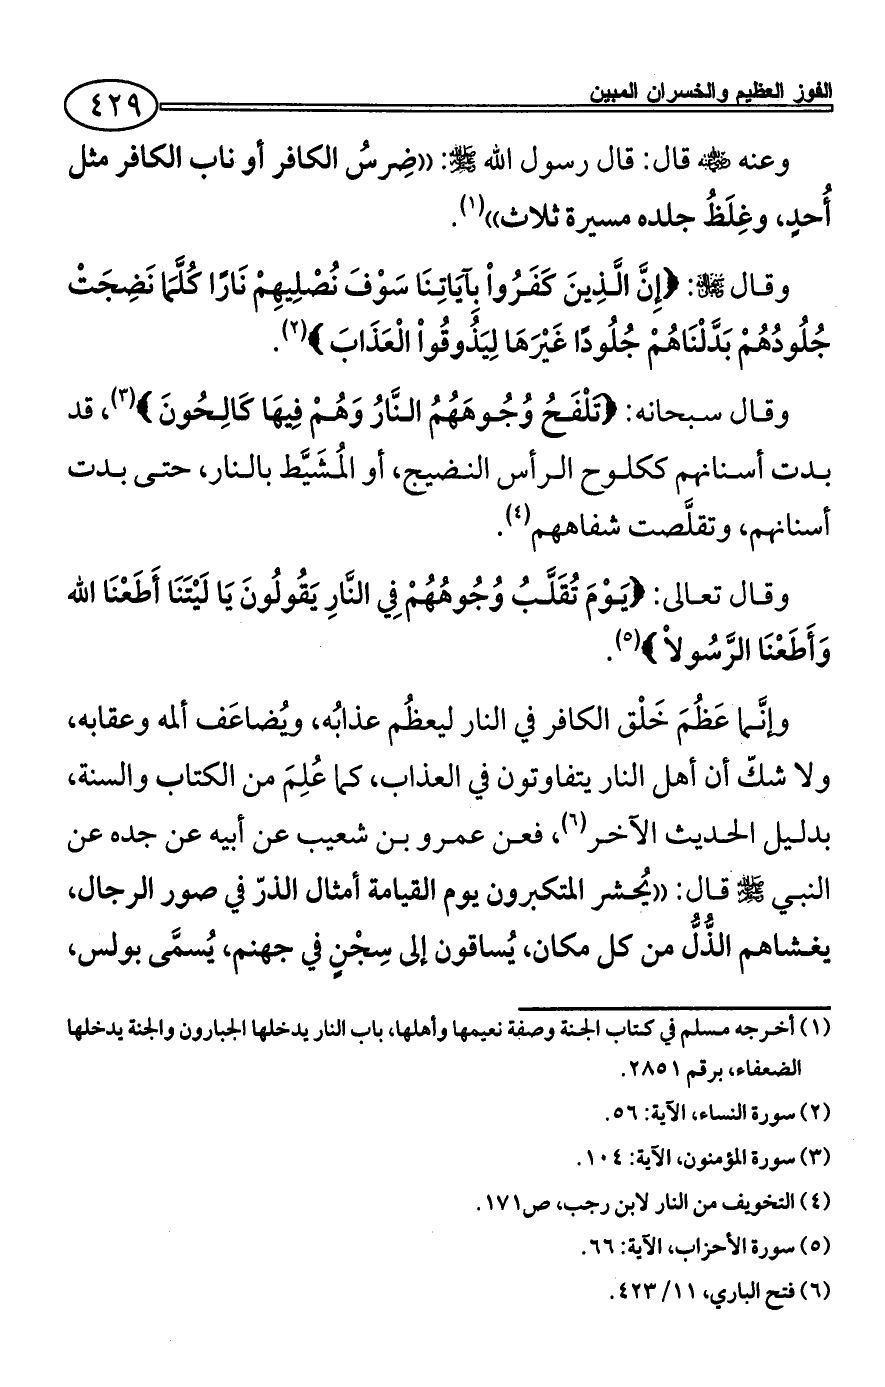 الفوز العظيم والخسران المبين
٤٢٩
وعنه ﷺ قال: قال رسول الله ﷺ: ((ضِرسُ الكافر أو ناب الكافر مثل
أُحدٍ، وغِلَظُ جلده مسيرة ثلاث))(١).
وقال ﷻ: ﴿إِنَّ الَّذِينَ كَفَرُواْ بِآيَاتِنَا سَوْفَ نُصْلِيهِمْ نَارًا كُلَّمَا نَضِجَتْ
جُلُودُهُمْ بَدَّلْنَاهُمْ جُلُودًا غَيْرَهَا لِيَذُوقُواْ الْعَذَابَ﴾(٢).
وقال سبحانه: ﴿تَلْفَحُ وُجُوهَهُمُ النَّارُ وَهُمْ فِيهَا كَالِحُونَ﴾(٣)، قد
بدت أسنانهم ككلوح الرأس النضيج، أو المُشَيَّط بالنار، حتى بدت
أسنانهم، وتقلَّصت شفاههم(٤).
وقال تعالى: ﴿يَوْمَ تُقَلَّبُ وُجُوهُهُمْ فِي النَّارِ يَقُولُونَ يَا لَيْتَنَا أَطَعْنَا الله
وَأَطَعْنَا الرَّسُولاْ﴾(٥).
وإنَّما عَظُمَ خَلْق الكافر في النار ليعظُم عذابُه، ويُضاعَف ألمه وعقابه،
ولا شكّ أن أهل النار يتفاوتون في العذاب، كما عُلِمَ من الكتاب والسنة،
بدليل الحديث الآخر(٦)، فعن عمرو بن شعيب عن أبيه عن جده عن
النبي ﷺ قال: ((يُحشر المتكبرون يوم القيامة أمثال الذرّ في صور الرجال،
يغشاهم الذُّلُّ من كل مكان، يُساقون إلى سِجْنٍ في جهنم، يُسمَّى بولس،
(١) أخرجه مسلم في كتاب الجنة وصفة نعيمها وأهلها، باب النار يدخلها الجبارون والجنة يدخلها
الضعفاء، برقم ٢٨٥١.
(٢) سورة النساء، الآية: ٥٦.
(٣) سورة المؤمنون، الآية: ١٠٤.
(٤) التخويف من النار لابن رجب، ص١٧١.
(٥) سورة الأحزاب، الآية: ٦٦.
(٦) فتح الباري، ١١/ ٤٢٣.